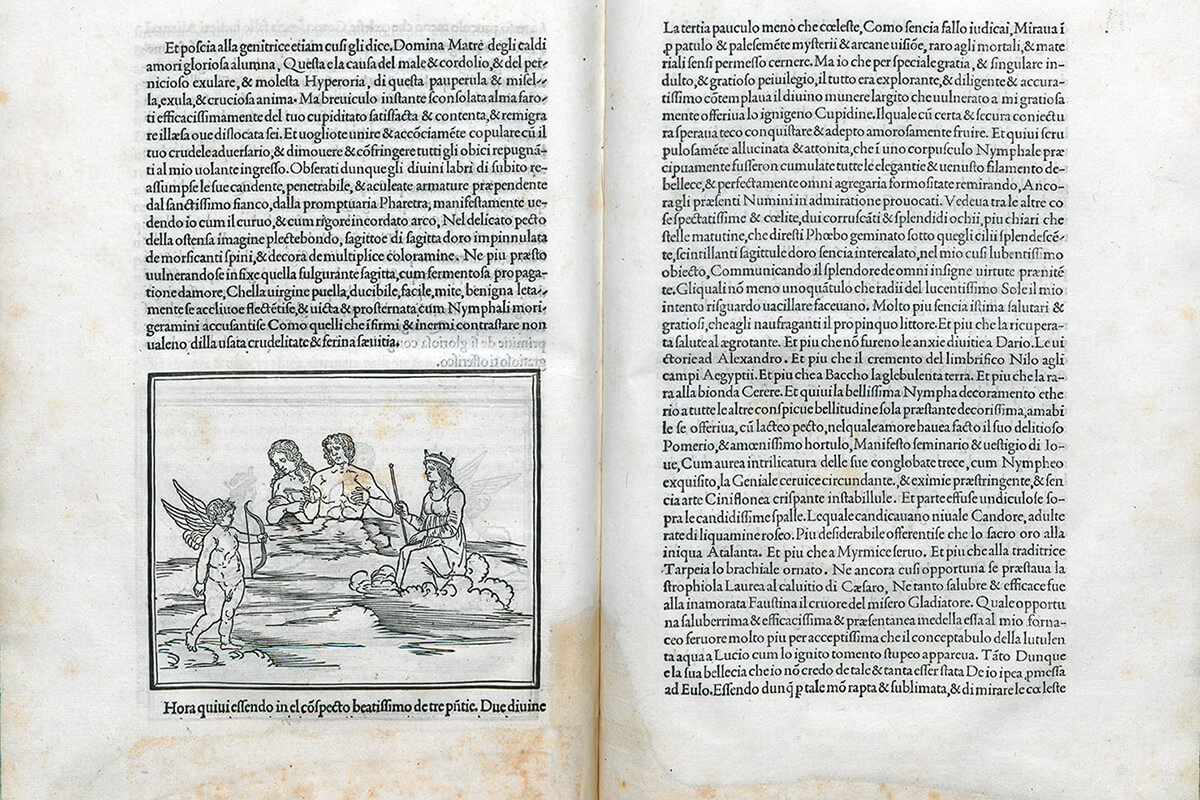 Et poscia alla genitrice etiam cusi gli dice, Domina Matre degli caldi
amori gloriosa alumna, Questa e la causa del male & cordolio, & del per-
nicioso exulare, & molesta Hyperoria, di questa paupercula & misel-
la, exula, & cruciosa anima. Ma breuiculo instante sconsolata alma faro-
ti efficacissimamente del tuo cupiditato satisfacta & contenta, & remigra
re illæsa oue dislocata sei. Et uogliote unire & accõciamẽte copulare cũ il
tuo crudele aduersario, & dimouere & cõfringere tutti gli obici repugnã-
ti al mio uolante ingresso. Obserati dunque gli diuini labri di subito re-
assumpse le sue candente, penetrabile, & aculeate armature præpendente
dal sanctissimo fianco, dalla promptuaria Pharetra, manifestamente ue-
dendo io cum il curuo, & cum rigore incordato arco, Nel delicato pecto
della ostensa imagine plectebondo, sagittoe di sagitta doro impinnulata
de morsicanti spini, & decora de multiplice coloramine. Ne piu præsto
uulnerando se infixe quella fulgurante sagitta, cum fermentosa propaga-
tione damore, Chella uirgine puella, ducibile, facile, mite, benigna leta-
mente se acceliuoe flectẽtise, & uicta & prosternata cum Nymphali mori-
geramini accusantise Como quelli che ifirmi & inermi contrastare non
ualeno dilla usata crudelitate & ferina sæuitia.
Hora quiui essendo in el cõspecto beatissimo de tre pñtie. Due diuine
La tertia pauculo meno che cœleste, Como sencia fallo iudicai, Miraua ĩ
ꝓpatulo & palesemẽte mysterii & arcane uisiõe, raro agli mortali, & mate
riali sensi permesso cernere. Ma io che per speciale gratia, & singulare in-
dulto, & gratioso peiuilegio, il tutto era explorante, & diligente & accura-
tissimo cõtemplaua il diuino munere largito che uulnerato a mi gratiosa
mente offeriua lo ignigeno Cupidine. Il quale cũ certa & secura coniectu
ra speraua teco conquistare & adepto amorosamente fruire. Et quiui scru
pulosamẽte allucinata & attonita, che ĩ uno corpusculo Nymphale præ
cipuamente fusseron cumulate tutte le elegantie & uenusto filamento de-
bellece, & perfectamente omni agregaria formositate remirando, Anco-
ra gli præsenti Numini in admiratione prouocati. Vedeua tra le altre co
se spectatissime & cœlite, dui corruscãti & splendidi ochii, piu chiari che
stelle matutine, che diresti Phœbo geminato sotto quegli cilii splendescẽ-
te, scintillanti sagittule doro sencia intercalato, nel mio cusi lubentissimo
obiecto, Communicando il splendore de omni insigne uirtute prænitẽ
te. Gli quali nõ meno unoquãtulo che radii del lucentissimo Sole il mio
intento risguardo uacillare faceuano. Molto piu sencia istima salutari &
gratiosi, che agli naufraganti il propinquo littore. Et piu che la ricupera-
ta salute al ægrotante. Et piu che nõ fureno le anxie diuitie a Dario. Le ui
ctorie ad Alexandro. Et piu che il cremento del limbrifico Nilo agli
campi Aegyptii. Et piu che a Baccho la glebulenta terra. Et piu che la ra-
ra alla bionda Cerere. Et quiui la bellissima Nympha decoramento ethe
rio a tutte le altre conspicue bellitudine sola præstante decorissima, amabi
le se offeriua, cũ lacteo pecto, nel quale amore hauea facto il suo delitioso
Pomerio, & amœnissimo hortulo, Manifesto seminario & uestigio di Io-
ue, Cum aurea intrilicatura delle sue conglobate trece, cum Nympheo
exquisito, la Geniale ceruice circundante. & eximie præstringente, & sen-
cia arte Ciniflonea crispante instabillule. Et parte effuse undiculose so-
pra le candidissime spalle. Le quale candicauano niuale Candore, adulte
rate di liquamine roseo. Piu desiderabile offerentise che lo sacro oro alla
iniqua Atalanta. Et piu che a Myrmice seruo. Et piu che alla traditrice
Tarpeia lo brachiale ornato. Ne ancora cusi opportuna se præstaua la
strophiola Laurea al caluitio di Cæsaro, Ne tanto salubre & efficace fue
alla inamorata Faustina il cruore del misero Gladiatore. Quale opportu
na saluberrima & efficacissima & præsentanea medella essa al mio forna-
ceo feruore molto piu per acceptissima che il conceptabulo della lutulen
ta aqua a Lucio cum lo ignito tomento stupeo appareua. Tãto Dunque
e la sua bellecia che io nõ credo de tale & tanta esser stata Deiopea ꝓmessa
ad Eulo. Essendo dunq̃ ꝑ tale mõ rapta & sublimata, & di mirare le cœleste